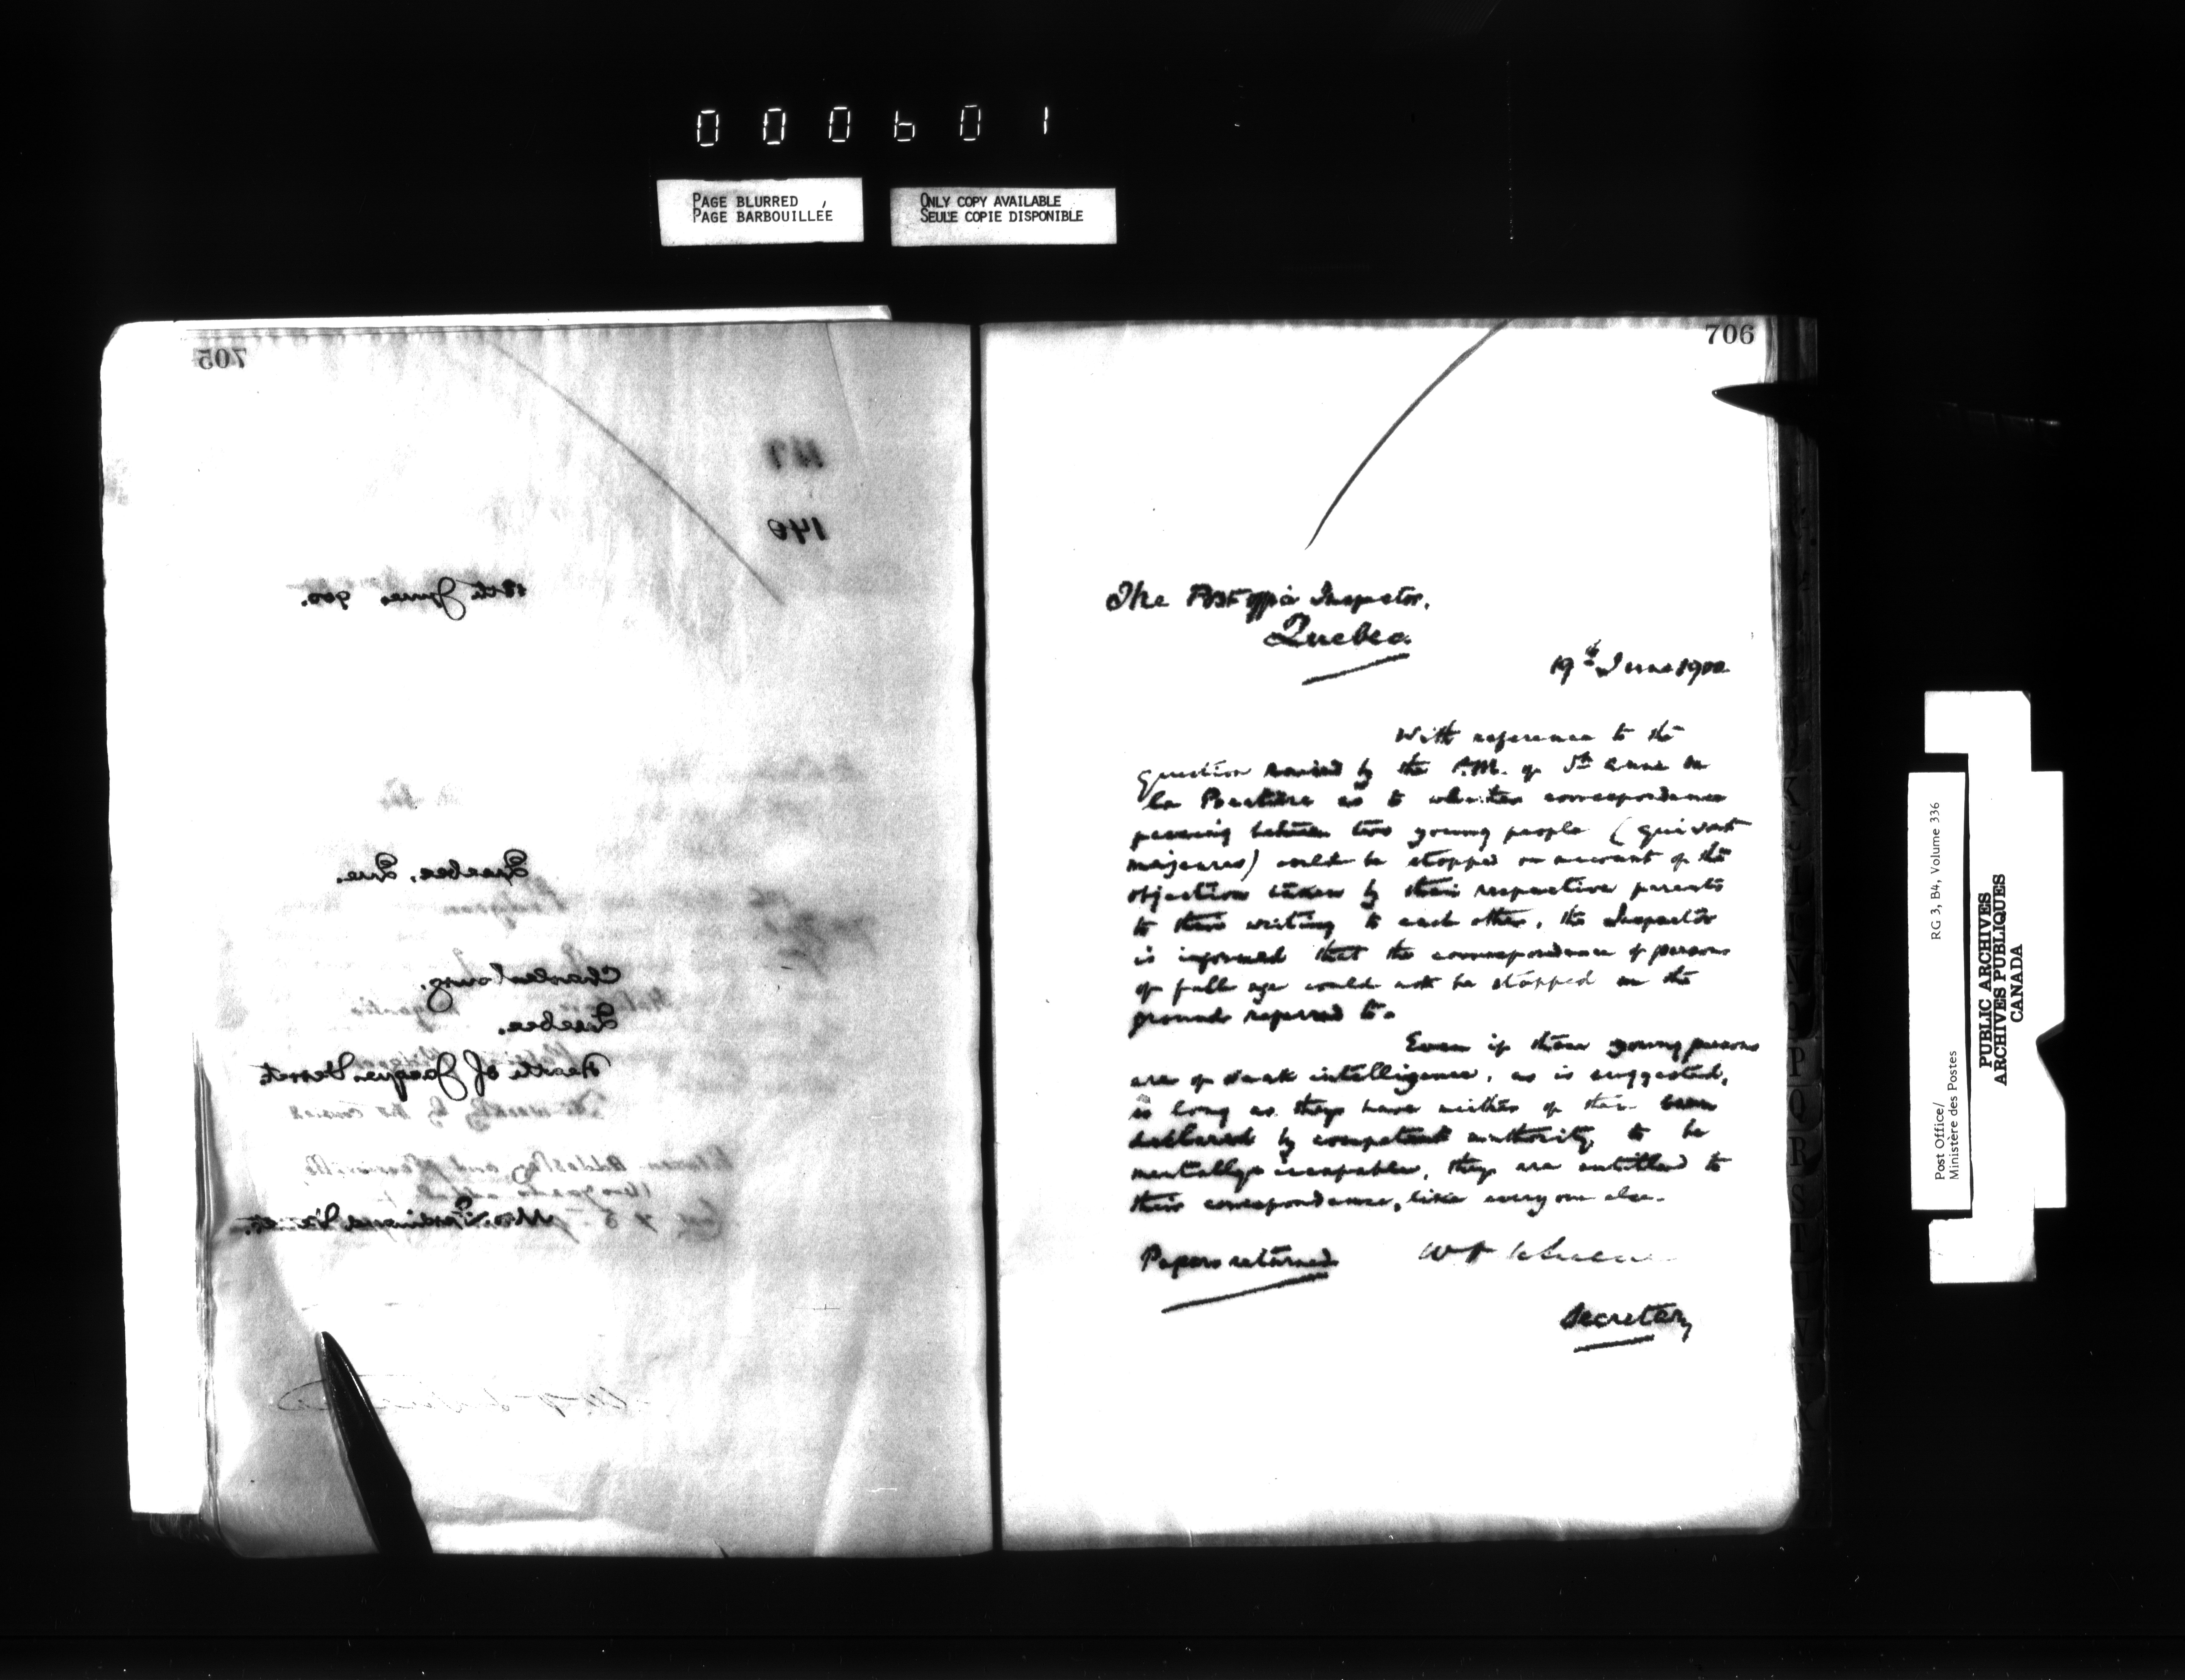 000601
PAGE BLURRED
PAGE BARBOUILLÉE
ONLY COPY AVAILABLE
SEULE COPIE DISPONIBLE
705
117
140
18th June 900.
Quebec, Que.
Charlesbourg.
Quebec.
Death of Jacques Verret
706
The Post Office Inspector,
Quebec.
19th June 1900
With reference to the
question raised by the P.M. of Ste Anne de
la Pocatière as to whether correspondence
passing between two young people (qui sont
majeures) could be stopped on account of the
objection taken by their respective parents
to their writing to each other, the Inspector
is informed that the correspondence of persons
of full age could not be stopped on the
ground referred to.
Even if these young persons
are of weak intelligence, as is suggested,
so long as they have neither of them been
declared by competent authority to be
mentally incapable, they are entitled to
their correspondence, like every one else.
Papers returned
Secretary
Post Office/
Ministère des Postes
RG 3, B4, Volume 336
PUBLIC ARCHIVES
ARCHIVES PUBLIQUES
CANADA